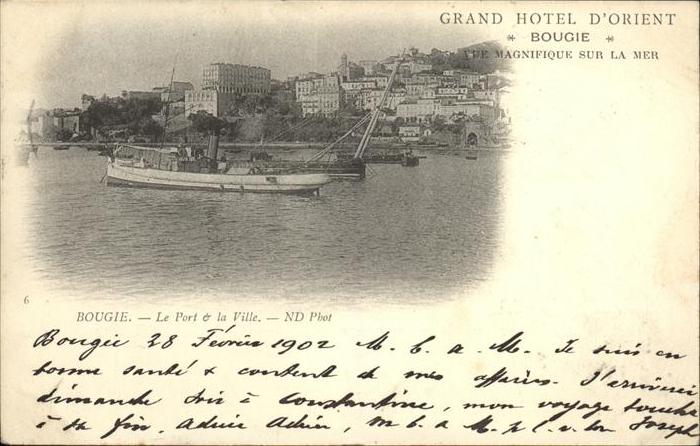 GRAND HOTEL D'ORIENT
* BOUGIE *
VUE MAGNIFIQUE SUR LA MER
6
BOUGIE. — Le Port & la Ville. — ND Phot
Bougie 28 Février 1902 M. b. a. M. Je suis en
bonne santé & content de mes affaires. J'arriverai
dimanche soir à Constantine, mon voyage touche
à sa fin. Adieu Adrien, m b a M. Joseph